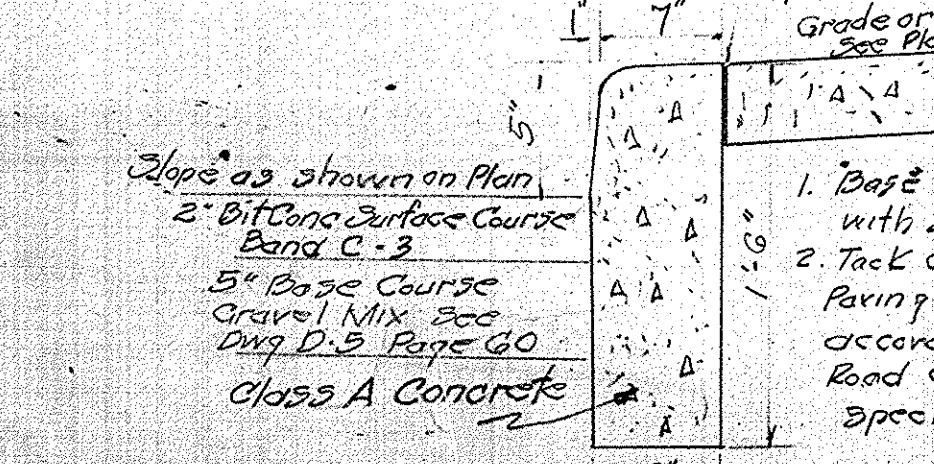 1" 7"
Grade or
see Pla
5"
Slope as shown on Plan
2" Bit Conc Surface Course
Band C-3
5" Base Course
Gravel Mix See
Dwg D.5 Page 60
Class A Concrete
1'-6"
1. Base
with
2. Tack
Paving
accord
Road
Spec